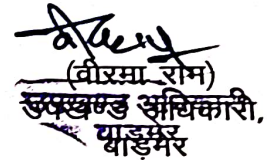 (वीरमा राम)
उपखण्ड अधिकारी,
बाड़मेर
बाड़मेर